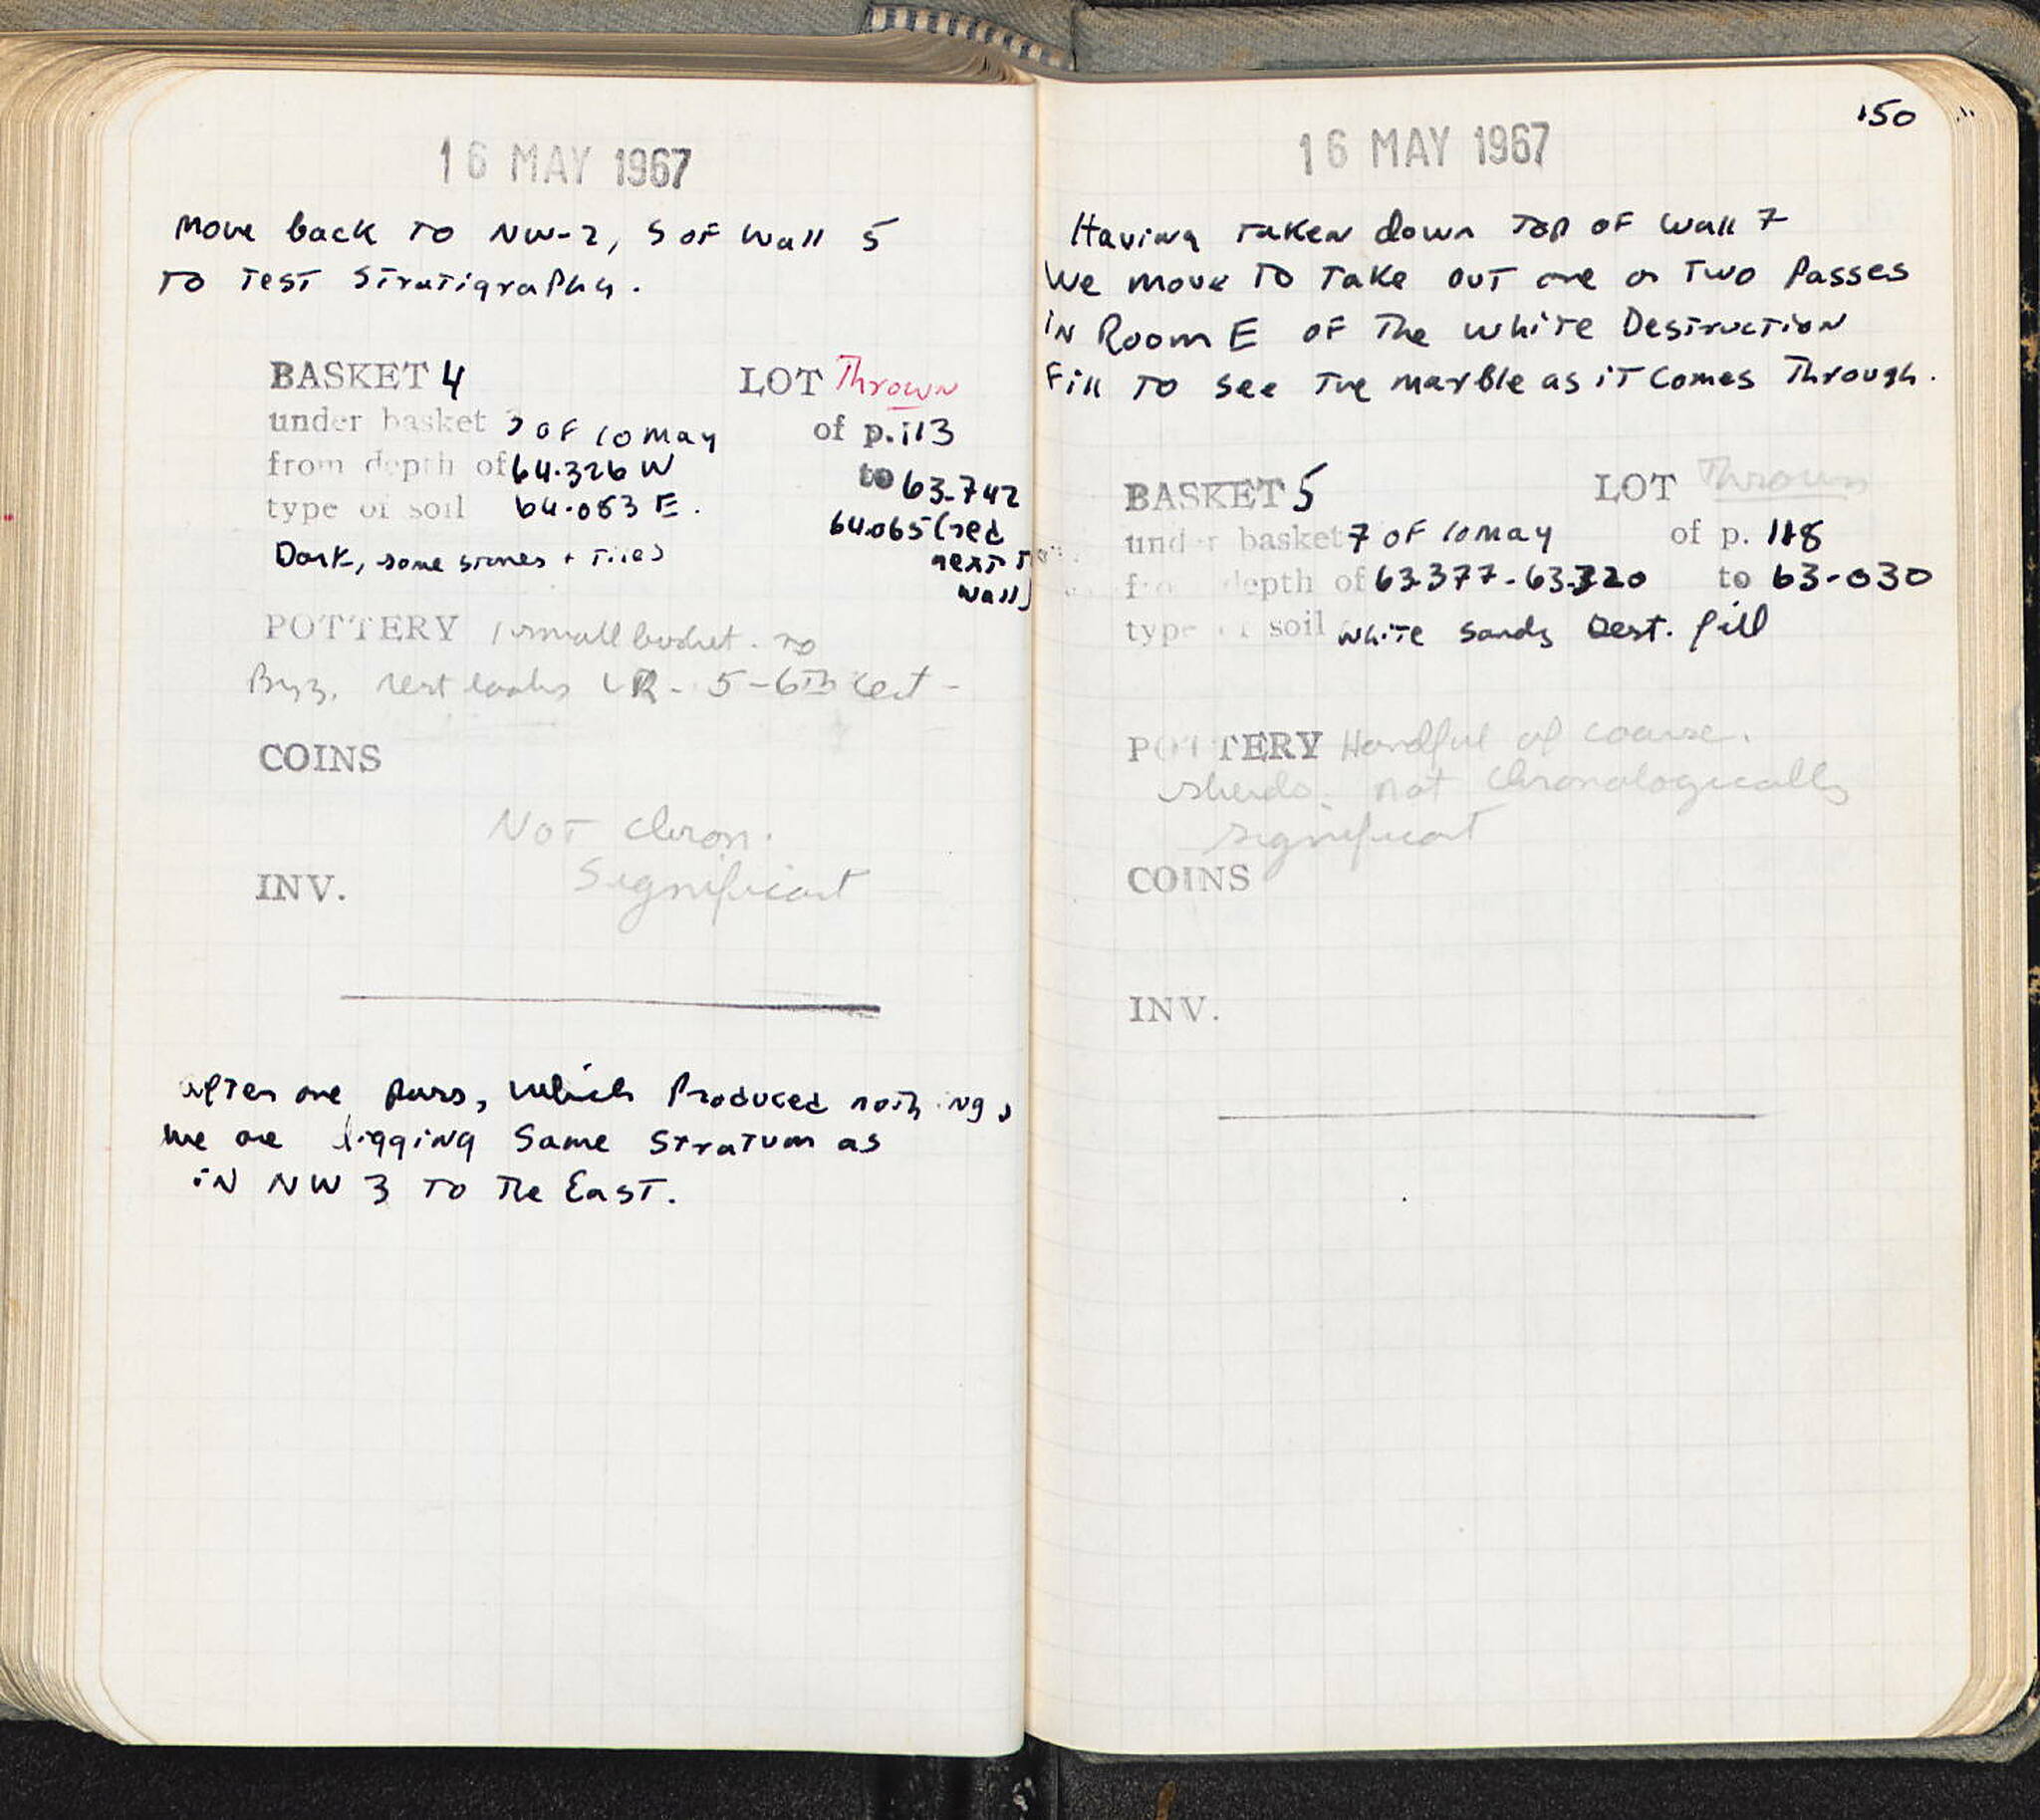 16 MAY 1967
Move back to NW-2, S of Wall 5
to test Stratigraphy.
BASKET 4 LOT Thrown
under basket 3 of 10 May of p. 113
from depth of 64.326 W to 63.742
type of soil 64.083 E. 64.065 (red
Dark, some stones + tiles next to
wall)
POTTERY 1 small basket. no
Byz. rest looks LR - 5-6th cent -
COINS
Not chron.
Significant
INV.
after one pass, which Produced nothing,
we are digging Same Stratum as
in NW 3 to the East.
150
16 MAY 1967
Having taken down top of Wall 7
We move to take out one or two passes
in Room E of the white Destruction
Fill to see the marble as it comes through.
BASKET 5 LOT Thrown
under basket 7 of 10 May of p. 118
from depth of 63.377 - 63.320 to 63.030
type of soil White sandy Dest. fill
POTTERY Handful of coarse
sherds. not chronologically
significant
COINS
INV.